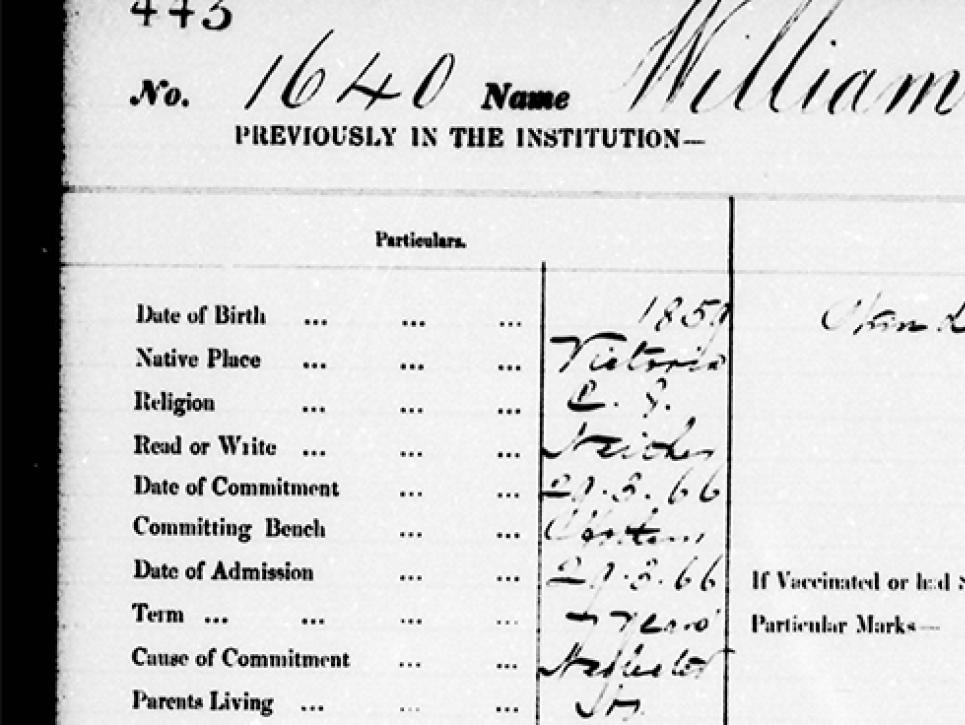 443
No. 1640 Name William
PREVIOUSLY IN THE INSTITUTION—
Particulars.
Date of Birth ... ... ... 1859
Native Place ... ... ... Victoria
Religion ... ... ... C. E.
Read or Write ... ... ... Neither
Date of Commitment ... ... 29.3.66
Committing Bench ... ...
Date of Admission ... ... 29.3.66
If Vaccinated or had
Term ... ... ... ... years
Particular Marks—
Cause of Commitment ... ... Neglected
Parents Living ... ... ...